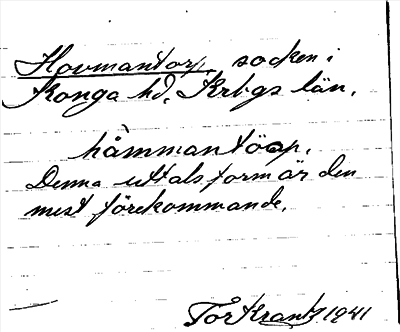 Hovmantorp socken i
Konga hd, Krbgs län.
håmmantöap.
Denna uttalsform är den
mest förekommande.
Tor Krantz 1941